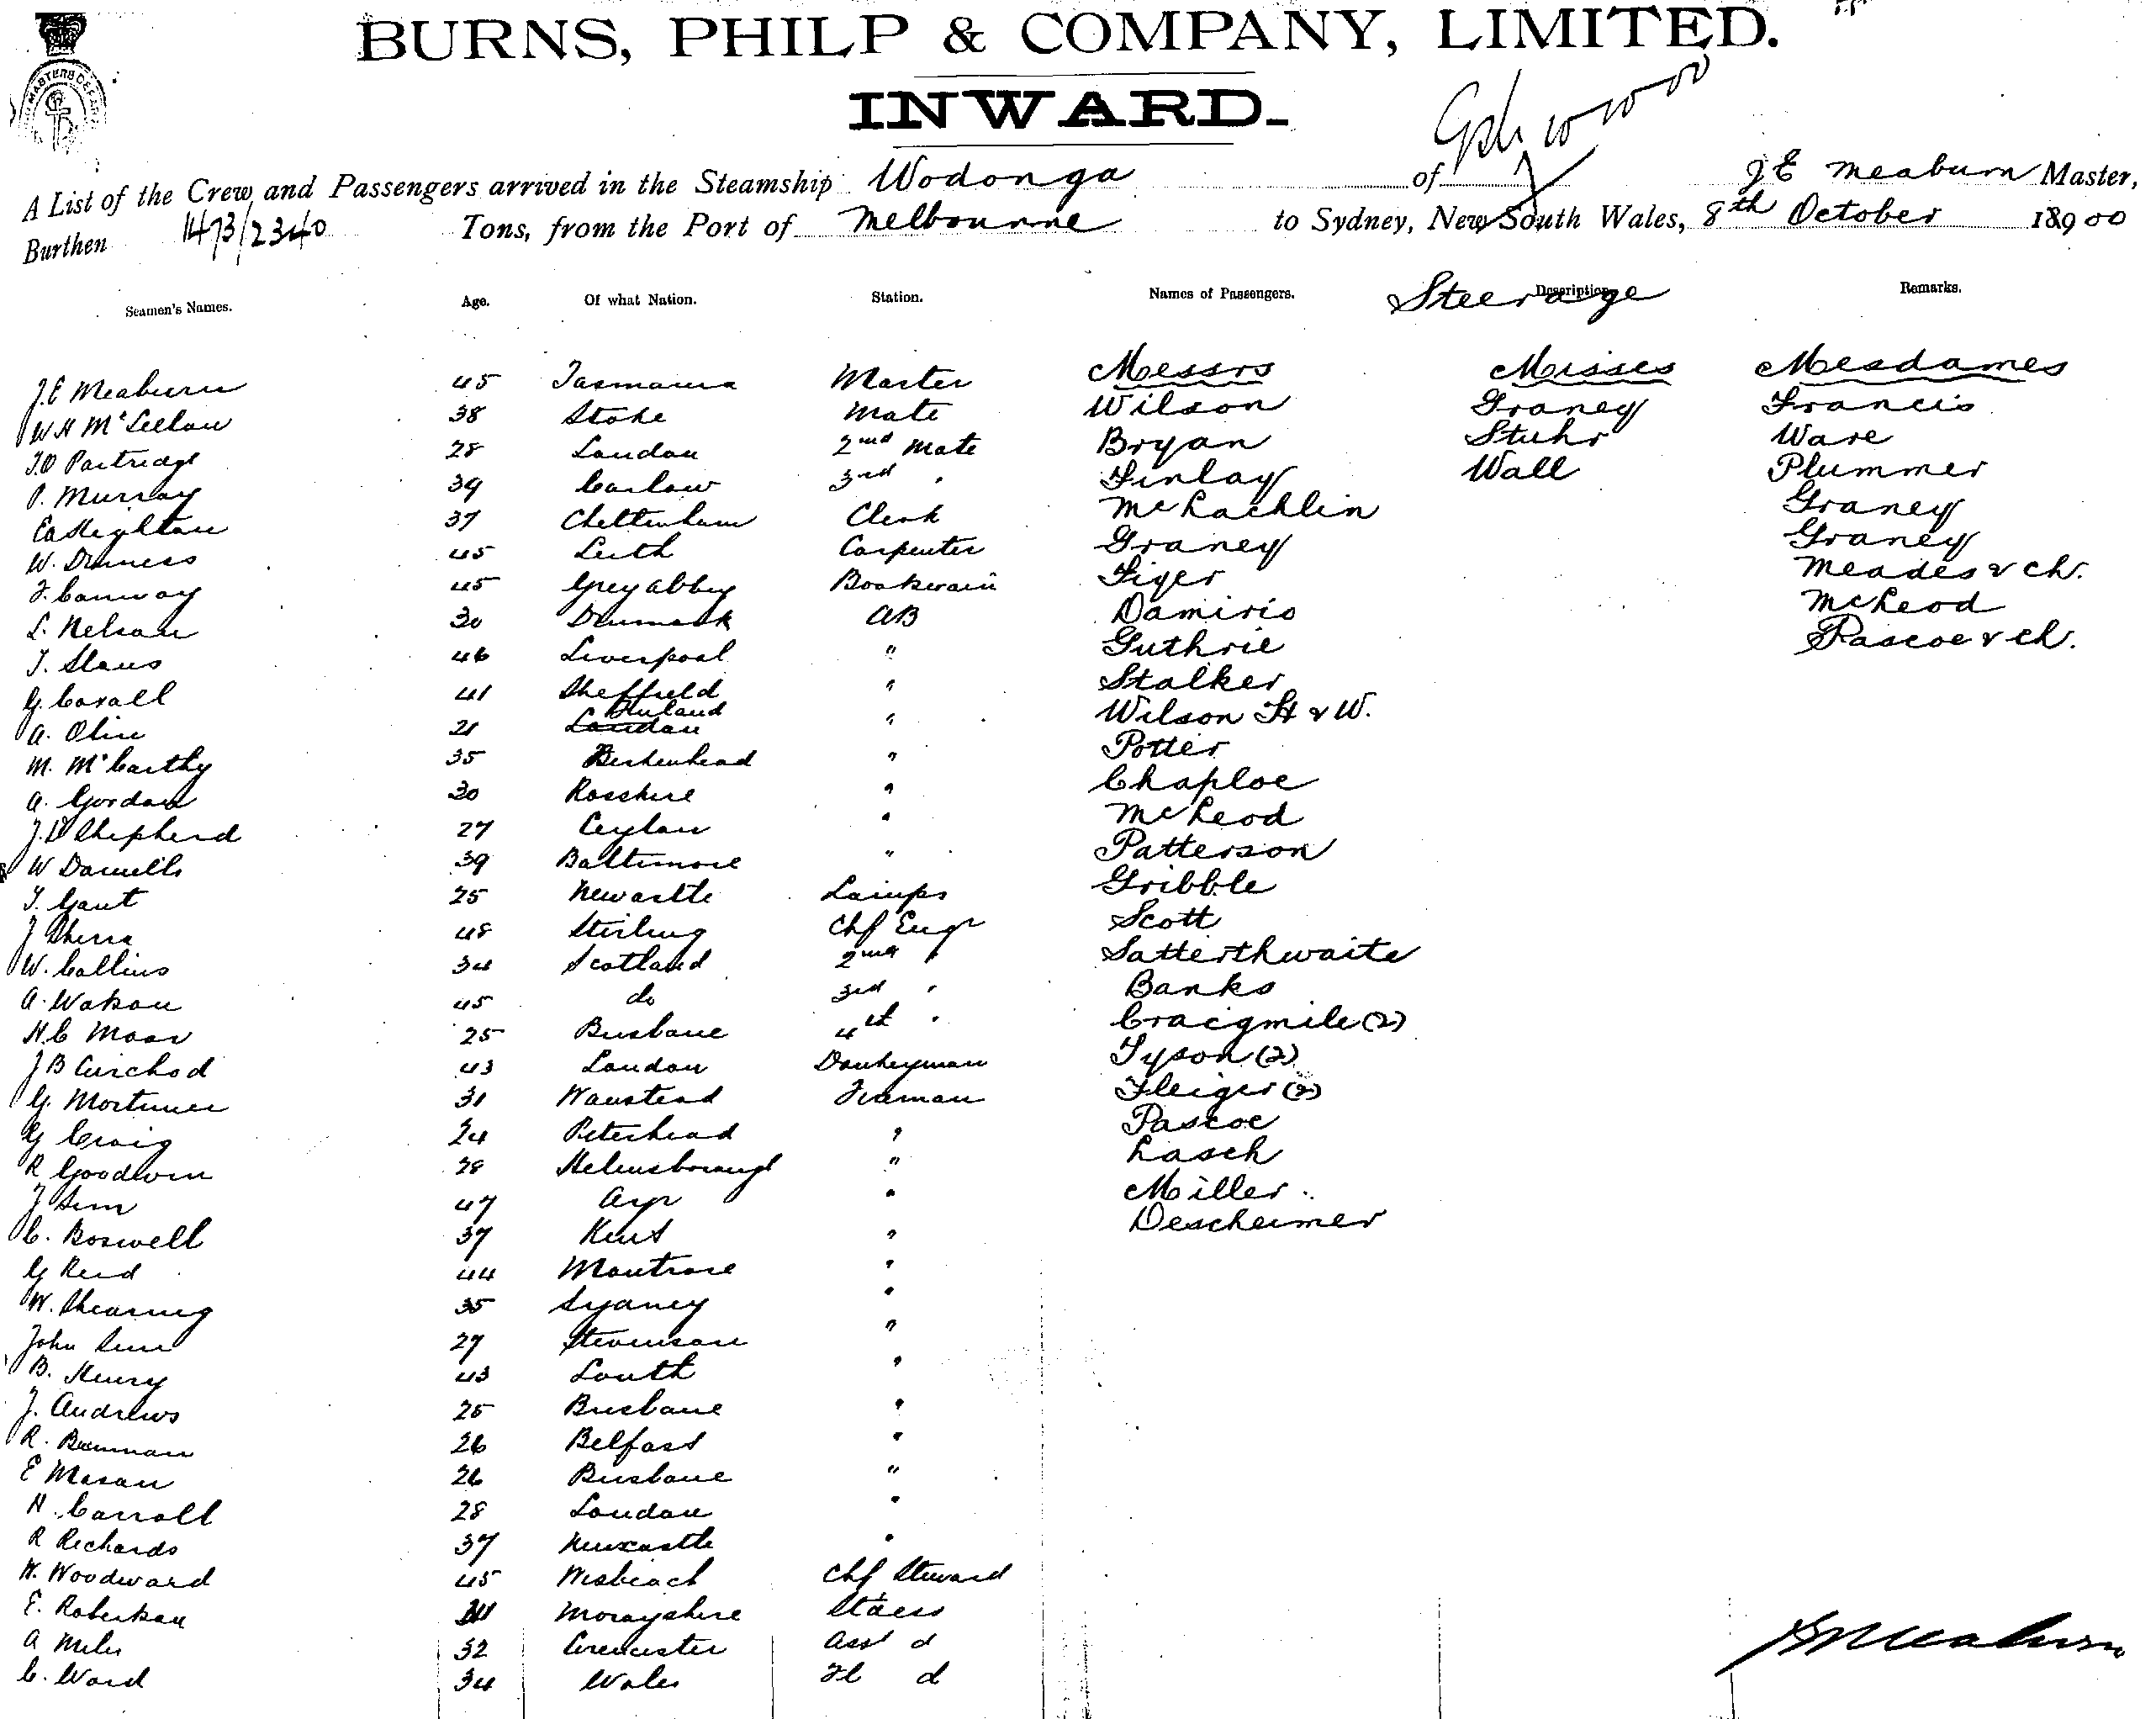 BURNS, PHILP & COMPANY, LIMITED.
INWARD.
A List of the Crew and Passengers arrived in the Steamship Wodonga of J E Meaburn Master,
Burthen 1473/2340 Tons, from the Port of Melbourne to Sydney, New South Wales, 8th October 18900
Seamen's Names. Age. Of what Nation. Station. Names of Passengers. Description Steerage Remarks.
J.E Meaburn 45 Tasmania Master Messrs Misses Mesdames
W H McLellan 38 Stoke Mate Wilson Graney Francis
Partridge 28 London 2nd Mate Bryan Stuhr Ware
P. Murray 39 Carlow 3rd " Finlay Wall Plummer
37 Cheltenham Clerk McLachlin Graney
W. 45 Leith Carpenter Graney Graney
F. Conway 45 Greyabbey Boatswain Figer Meades & Ch.
L. Nelson 30 Denmark AB Damirio McLeod
46 Liverpool " Guthrie Pascoe & Ch.
G. 41 Sheffield " Stalker
A. Olin 21 London Finland " Wilson H & W.
M. McCarthy 35 Birkenhead " Potter
A. Gordon 30 Rosshire " Chaploe
Shepherd 27 Ceylon " McLeod
W Daniells 39 Baltimore " Patterson
T. Gaut 25 Newcastle Lamps Gribble
J 48 Stirling Chf Engr Scott
W. Collins 34 Scotland 2nd " Satterthwaite
A. Watson 45 do 3rd " Banks
H.C Moar 25 Brisbane 4th " Craigmile (2)
J B Curchod 43 London Donkeyman Tyson (2)
G. Mortimer 31 Wanstead Fireman Fleiger (2)
G Craig 24 Peterhead " Pascoe
R Goodwin 28 Helensborough " Lasch
J Sim 47 Ayr " Miller
C. Boswell 37 Kent " Descheimer
G Reid 44 Montrose "
W. Shearing 35 Sydney "
John 27 Stevenson "
B. Henry 43 Louth "
J. Andrews 25 Brisbane "
R. 26 Belfast "
E Mason 26 Brisbane "
H. Carroll 28 London "
R Richards 37 Newcastle "
W. Woodward 45 Wisbeach Chf Steward
E. Robertson Morayshire Stdess
A Miles 32 Cirencester Asst d
C. Ward 34 Wales d